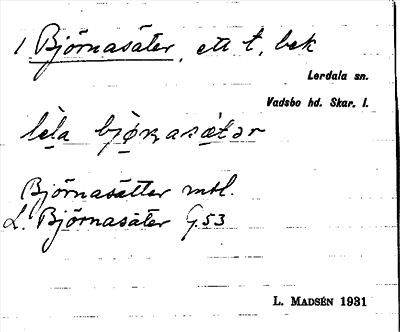 1 Björnasäter, ett t, bek
Lerdala sn.
Vadsbo hd. Skar. l.
lela bjørnasætər
Björnasätter mtl.
L. Björnasäter G.53
L. MADSÉN 1931